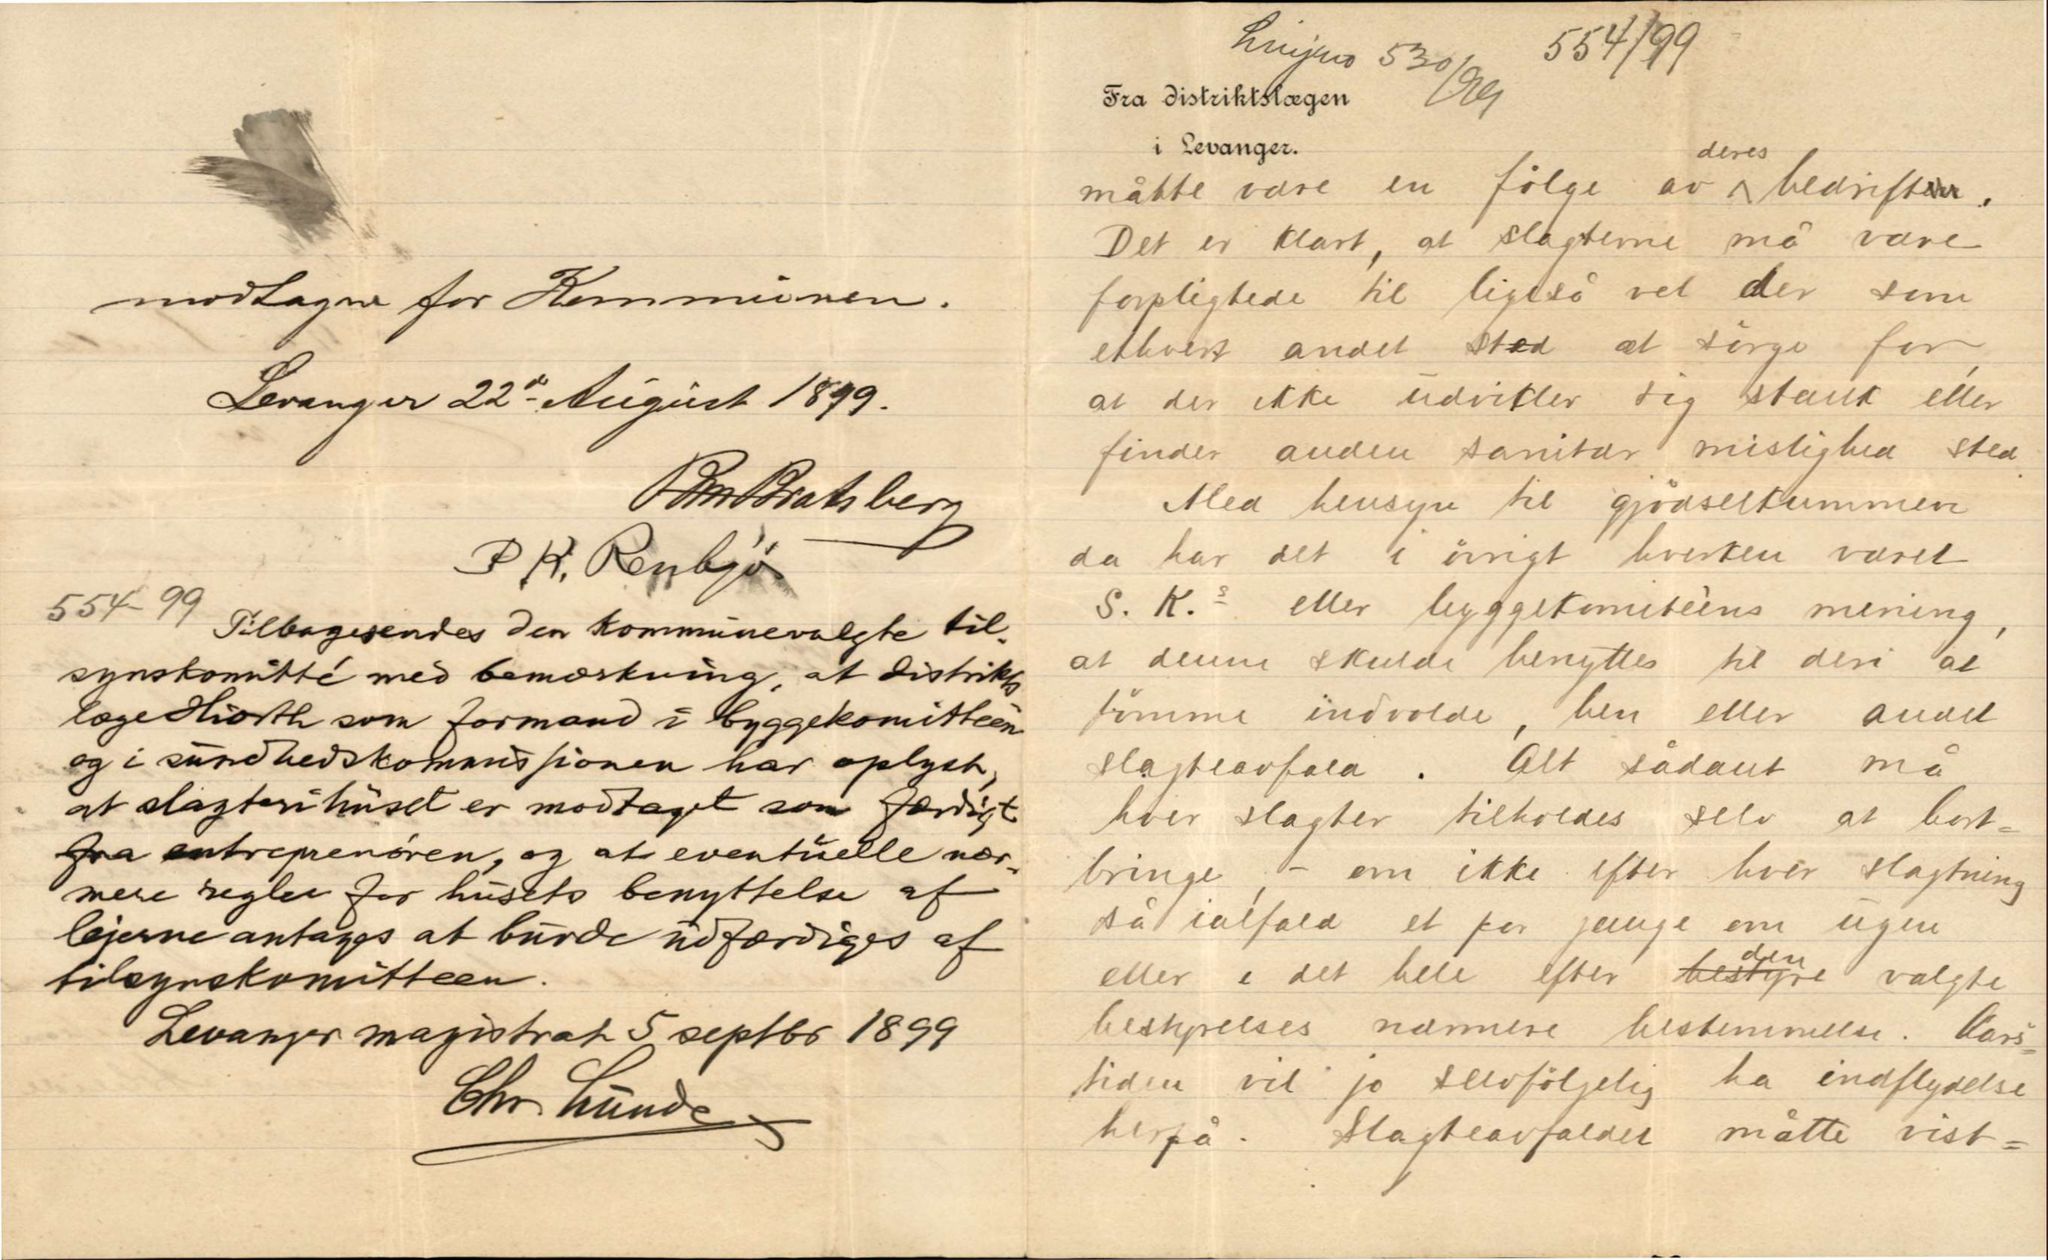 modtagne for Kommunen.
Levanger 22de August 1899.
Bratsberg
P. K. Renbjö
554-99
Tilbagesendes den kommunevalgte til-
synskomitté med bemærkning, at distrikts
læge Hiorth som formand i byggekomitteen
og i sundhedskommissionen har oplyst,
at slagterihuset er modtaget som færdigt
fra entreprenören, og at eventuelle nær-
mere regler for husets benyttelse af
lejerne antages at burde udfærdiges af
tilsynskomitteen.
Levanger magistrat 5 septbr 1899
Chr. Lunde
530/99 554/99
Fra distriktslægen
i Levanger.
måtte være en fölge av deres bedrift.
Det er klart, at slagterne må være
forpligtede til ligeså vel der som
ethvert andet sted at sörge for,
at der ikke udvikler sig stank eller
finder anden sanitær mislighed sted
Med hensyn til gjödselkummen
da har det i övrigt hverken været
S. K.s eller byggekomitéens mening,
at denne skulde benyttes til deri at
tömme indvolde, ben eller andet
slagteavfald. Alt sådant må
hver slagter tilholdes selv at bort=
bringe, - om ikke efter hver slagtning
så ialfald et par gange om ugen
eller i det hele efter bestyre den valgte
bestyrelses nærmere bestemmelse. Års=
tiden vil jo selvfölgelig ha indflydelse
herpå. Slagteavfaldet måtte vist=